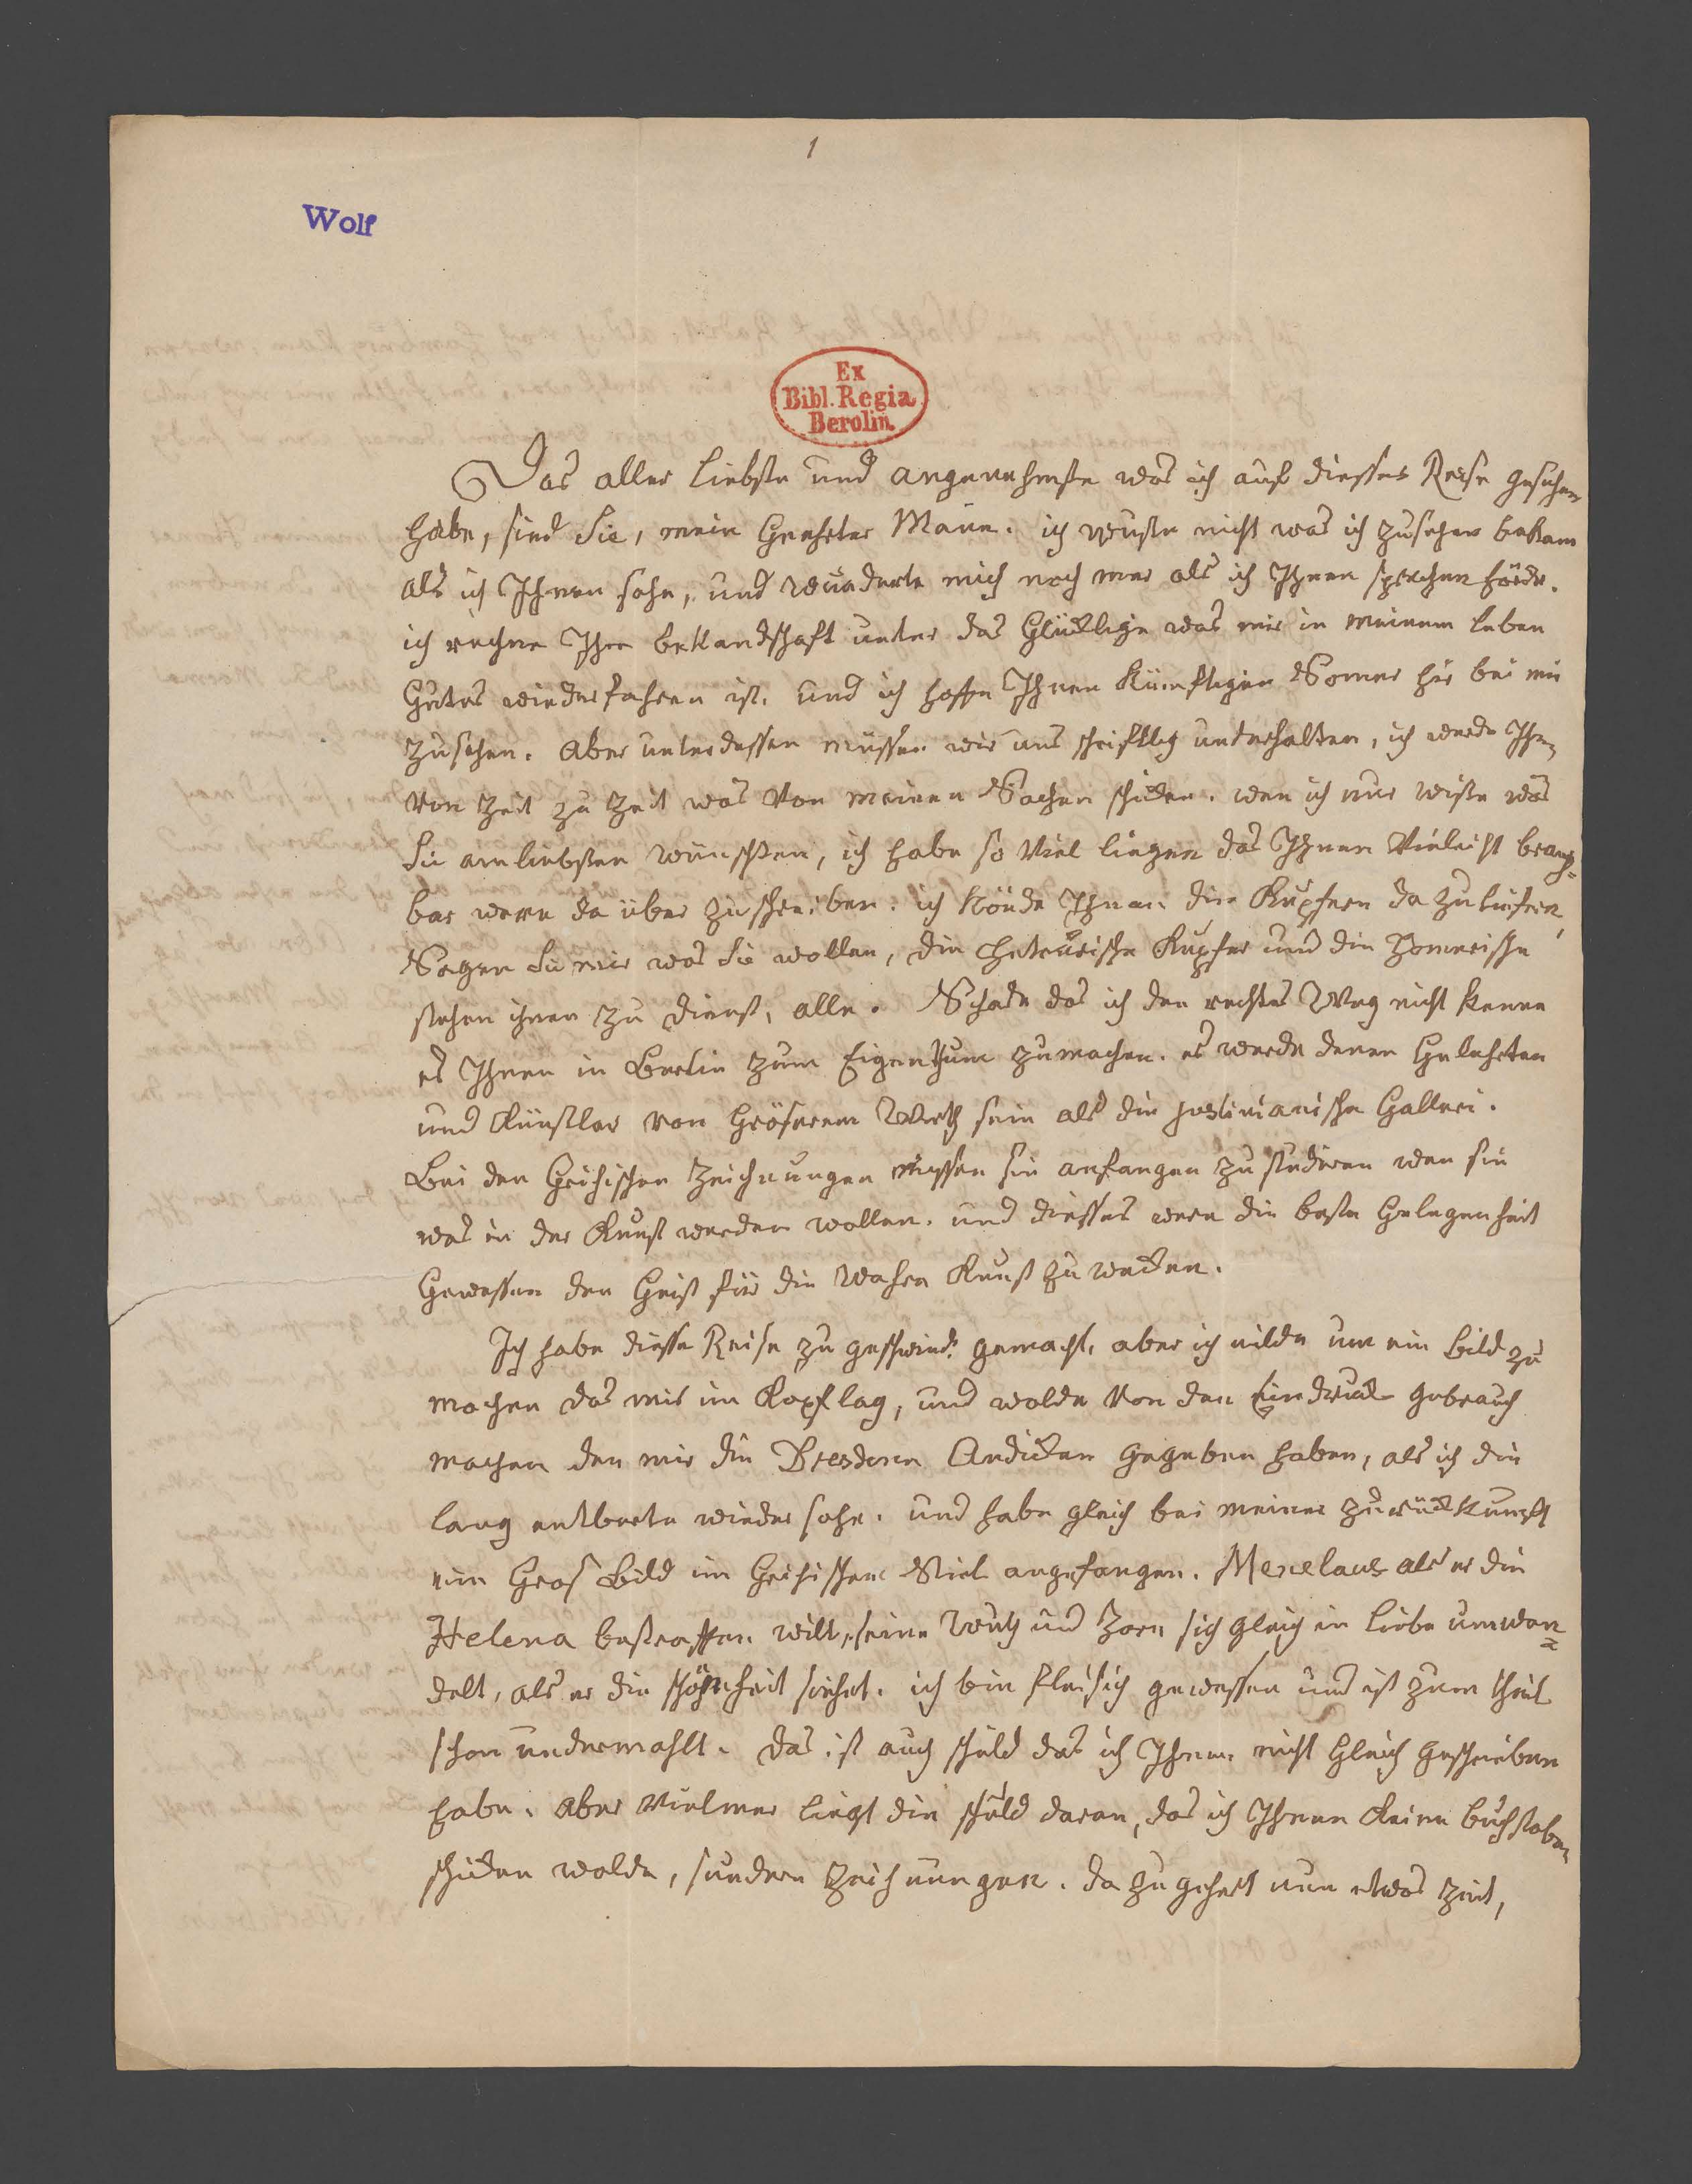 1
Wolf
Ex
Bibl. Regia
Berolin.
Das aller liebste und angenehmste was ich auf diesser Reise gesehen
habe, sind Sie, mein Geehrter Mann. ich wuste nicht was ich zusehen bekam
als ich Ihnen sahe, und wunderte mich noch mer als ich Ihnen sprechen hörde.
ich rechne Ihre bekandschaft unter das Glücklige was mir in meinem leben
Gutes wiederfahren ist. und ich hoffe Ihnen Künftigen Somer hir bei mir
zusehen. aber unterdessen müssen wir uns schriftlig underhalten, ich werde Ihnen
von Zeit zu Zeit was von meinen Sachen schicken. wen ich nur wiste was
Sie am liebsten wünschten, ich habe so viel liegen das Ihnen vieleicht brauch=
bar were da über zu schreiben. ich könde Ihnen die Kupfern da zu liefern,
Sagen Sie mir was Sie wollen, die hetrurische Kupfer und die Homerische
stehen ihnen zu dienst, alle. Schade das ich den rechtes Weg nicht kenne
es Ihnen in Berlin zum Eigenthum zumachen. es werde denen Gelehrten
und Künstler von Gröserem Werth sein als die justinianische Gallrei.
Bei den Grichischen Zeichnungen müssen sie anfangen zu studiren wen sie
was in der Kunst werden wollen. und diesses were die beste Gelegenheit
Gewessen den Geist für die Wahre Kunst zu wecken.
Ich habe diesse Reise zu geschwind gemacht, aber ich eilde um ein Bild zu
machen das mir im Kopf lag, und wolde von den Eindruck gebrauch
machen den mir die Dresdener Andicken gegeben haben, als ich die
lang entberte wieder sahe. und habe gleich bei meiner zurückkunft
ein Gros Bild im Grichischen Stiel angefangen. Menelaus als er die
Helena bestraffen will, seine Wuth und Zorn sich gleich in liebe umwan=
delt, als er die schönheit siehet. ich bin fleisich gewessen und ist zum theil
schon undermahlt. das ist auch schuld das ich Ihnen nicht Gleich geschrieben
habe. aber vielmer liegt die schuld daran, das ich Ihnen keine buchstaben
schicken wolde, sundern zeichnungen. da zu gehert nun etwas zeit,